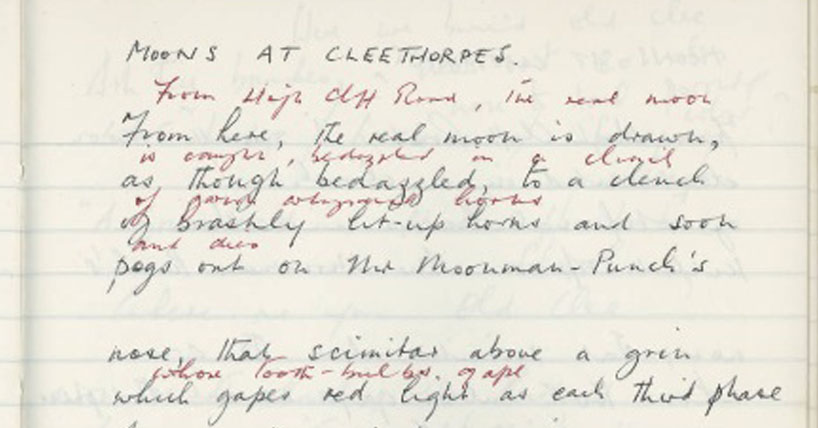 MOONS AT CLEETHORPES.
From High Cliff Road, the real moon
From here, the real moon is drawn,
is caught, bedazzled in a clench
as though bedazzled, to a clench
of horns
of brashly lit-up horns and soon
and dies
pegs out on Mr Moonman-Punch's
nose, that scimitar above a grin
whose tooth-bulbs gape
which gapes red light as each third phase